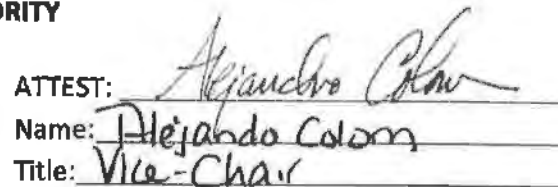 ORITY
ATTEST: Alejandro Colom
Name: Alejando Colom
Title: Vice-Chair